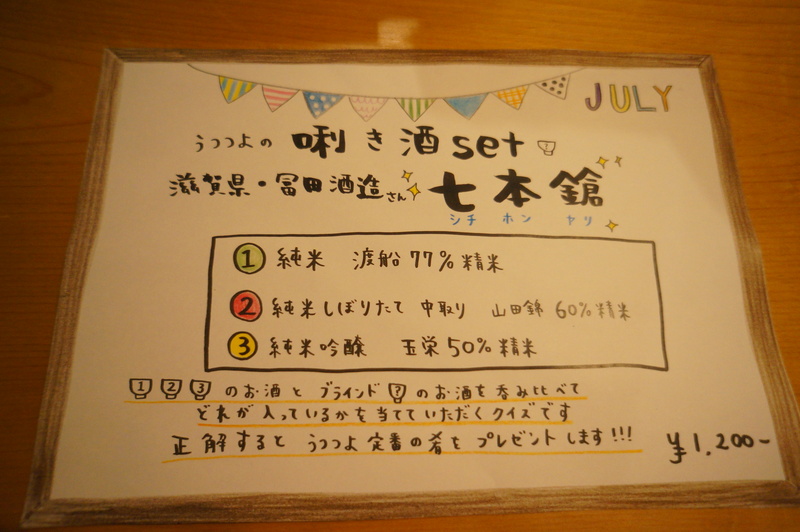 JULY
うつつよの 唎き酒set
滋賀県・冨田酒造さん 七本鎗
シチ ホン ヤリ
① 純米 渡船 77% 精米
② 純米しぼりたて 中取り 山田錦 60% 精米
③ 純米吟醸 玉栄 50% 精米
1 2 3 のお酒と ブラインド ? のお酒を呑み比べて
どれが入っているかを当てていただくクイズです
正解すると うつつよ定番の肴を プレゼントします!!!
¥1,200-